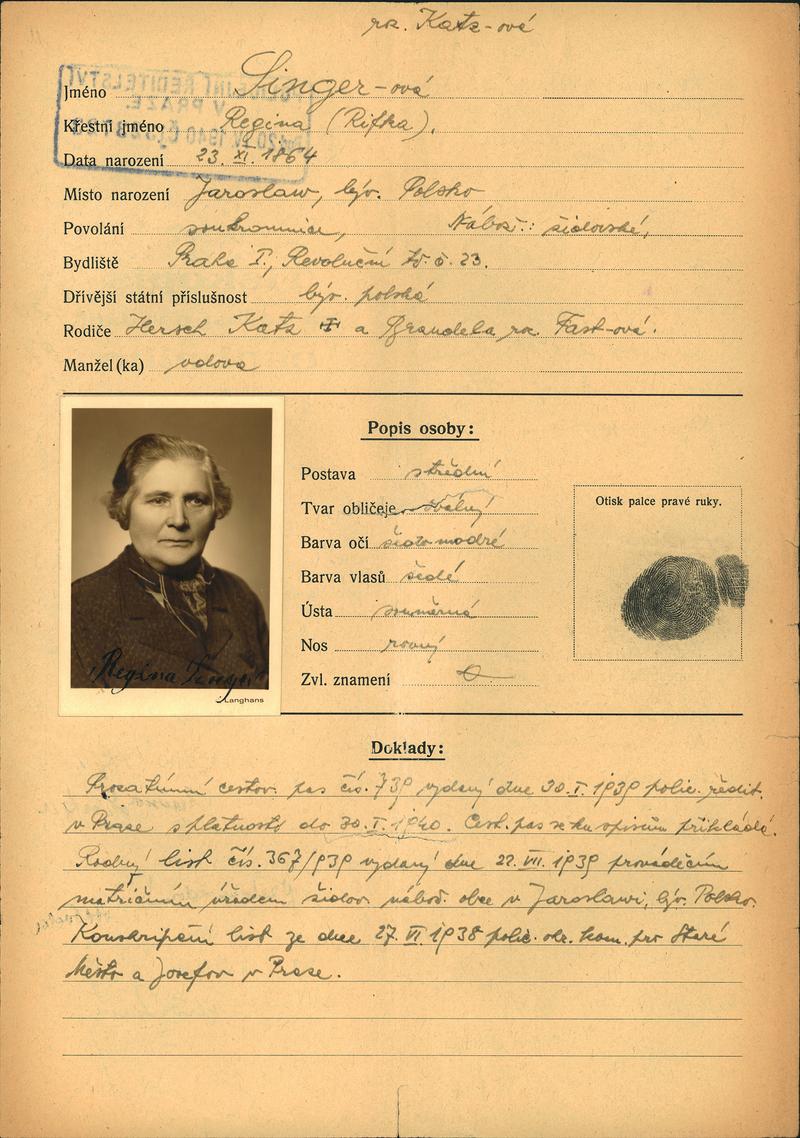 roz. Katz-ová
Jméno Singer-ová
Křestní jméno Regina (Rifka).
Data narození 23. XI. 1864
Místo narození Jaroslaw, býv. Polsko
Povolání soukromnice, Nábož.: židovské,
Bydliště Praha I., Revoluční tř. č. 23.
Dřívější státní příslušnost býv. polská
Rodiče Hersch Katz a roz. Fast-ová.
Manžel(ka) vdova
Popis osoby:
Postava střední
Tvar obličeje oválný
Otisk palce pravé ruky.
Barva očí šedomodré
Barva vlasů šedé
Ústa souměrná
Nos rovný
Zvl. znamení
Regina Singer
Langhans
Doklady:
cestov. pas čís. 739 vydaný dne 30. I. 1939 polic. ředit.
v Praze s platností do 30. I. 1940. Cest. pas se přikládá.
Rodný list čís. 367/939 vydaný dne 22. VII. 1939
matričním úřadem židov. nábož. obce v Jaroslawi, býv. Polsko.
Konskripční list ze dne 27. VI. 1938 polic. obv. kom. pro Staré
Město a Josefov v Praze.